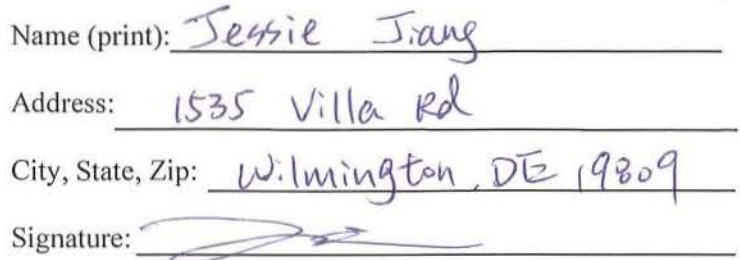 Name (print): Jessie Jiang
Address: 1535 Villa Rd
City, State, Zip: Wilmington, DE 19809
Signature: